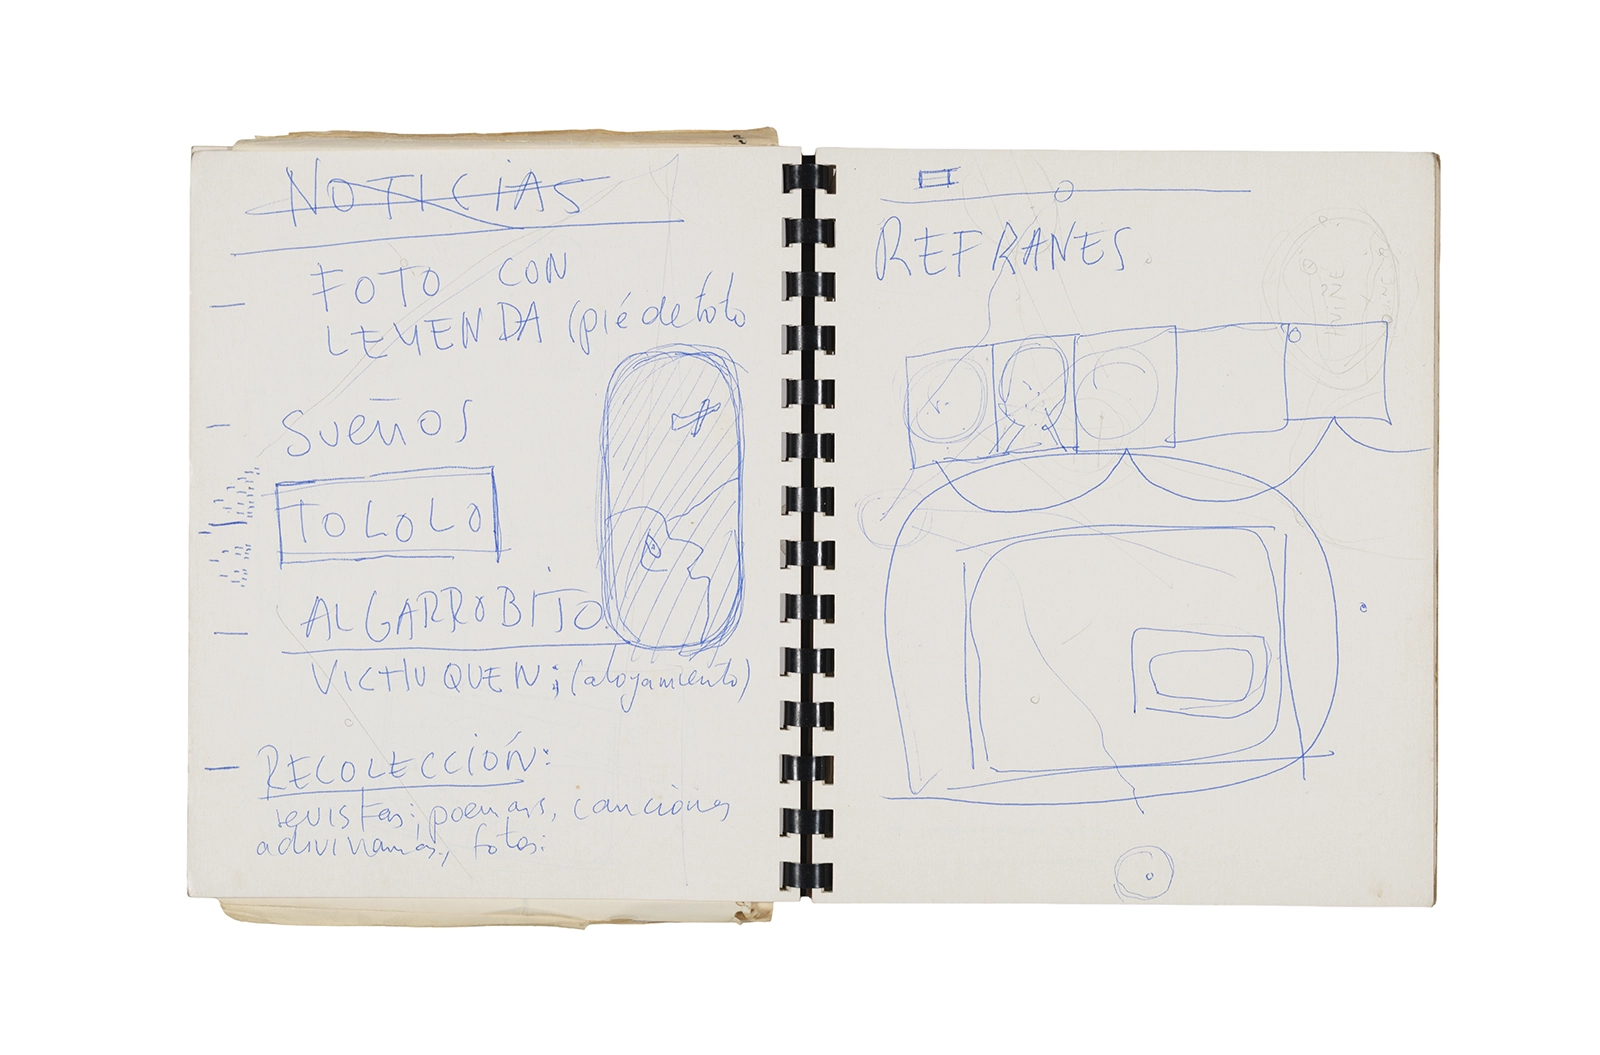 NOTICIAS
FOTO CON
LEYENDA (pié de foto
SUEÑOS
TOLOLO
ALGARROBITO.
VICTHUQUEN; (alojamiento)
RECOLECCIÓN:
revistas; poemas, canciones
adivinanzas, fotos:
REFRANES.